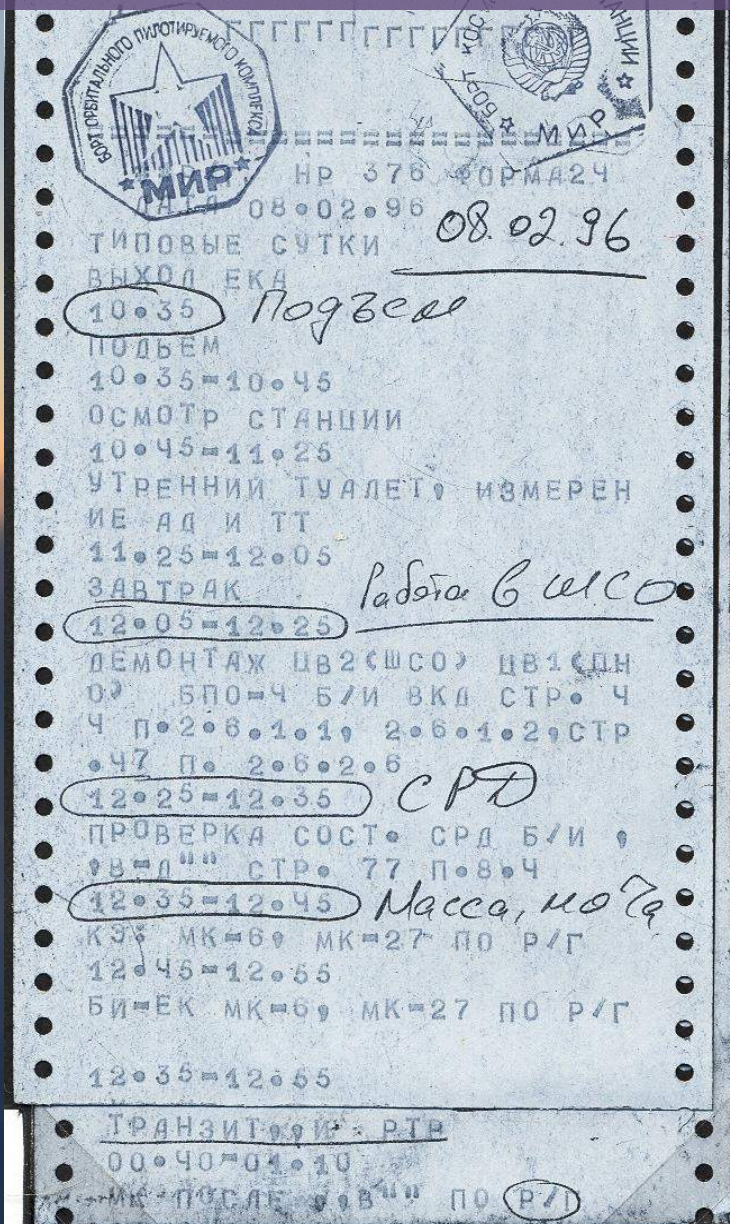 ГГГГГГГГГГГГГ
БОРТ ОРБИТАЛЬНОГО ПИЛОТИРУЕМОГО КОМПЛЕКСА
МИР
БОРТ КОС СТАНЦИИ
МИР
НР 376 ФОРМА24
ДАТА 08.02.96
08.02.96
ТИПОВЫЕ СУТКИ
ВЫХОД ЕКА
10.35 Подъем
ПОДЬЕМ
10.35=10.45
ОСМОТР СТАНЦИИ
10.45=11.25
УТРЕННИЙ ТУАЛЕТ, ИЗМЕРЕН
ИЕ АД И ТТ
11.25=12.05
ЗАВТРАК
Работа в ШСО
12.05=12.25
ДЕМОНТАЖ ЦВ2(ШСО) ЦВ1(ПН
О) БПО=4 Б/И ВКД СТР. 4
4 П.2.6.1.1, 2.6.1.2,СТР
.47 П. 2.6.2.6
12.25=12.35 СРД
ПРОВЕРКА СОСТ. СРД Б/И ,
,В=Д"" СТР. 77 П.8.4
12.35=12.45 Масса, моча
КЭ: МК=6, МК=27 ПО Р/Г
12.45=12.55
БИ=ЕК МК=6, МК=27 ПО Р/Г
12.35=12.55
ТРАНЗИТ,,И РТР
00.40=01.10
ПОСЛЕ ,,В"" ПО Р/Г